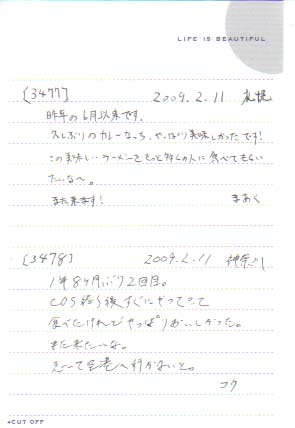 LIFE IS BEAUTIFUL
[3477] 2009.2.11 札幌
昨年の6月以来です。
久しぶりのカレーなっち、やっぱり美味しかったです!
この美味しいラーメンをもっと多くの人に食べてもらい
たいな〜。
また来ます! まあく
[3478] 2009.2.11 神奈川
1年8ヶ月ぶり2回目。
終了後すぐにやってきて
食べたけれどやっぱりおいしかった。
また来たいな。
急いで空港へ行かないと。
コウ
◂CUT OFF